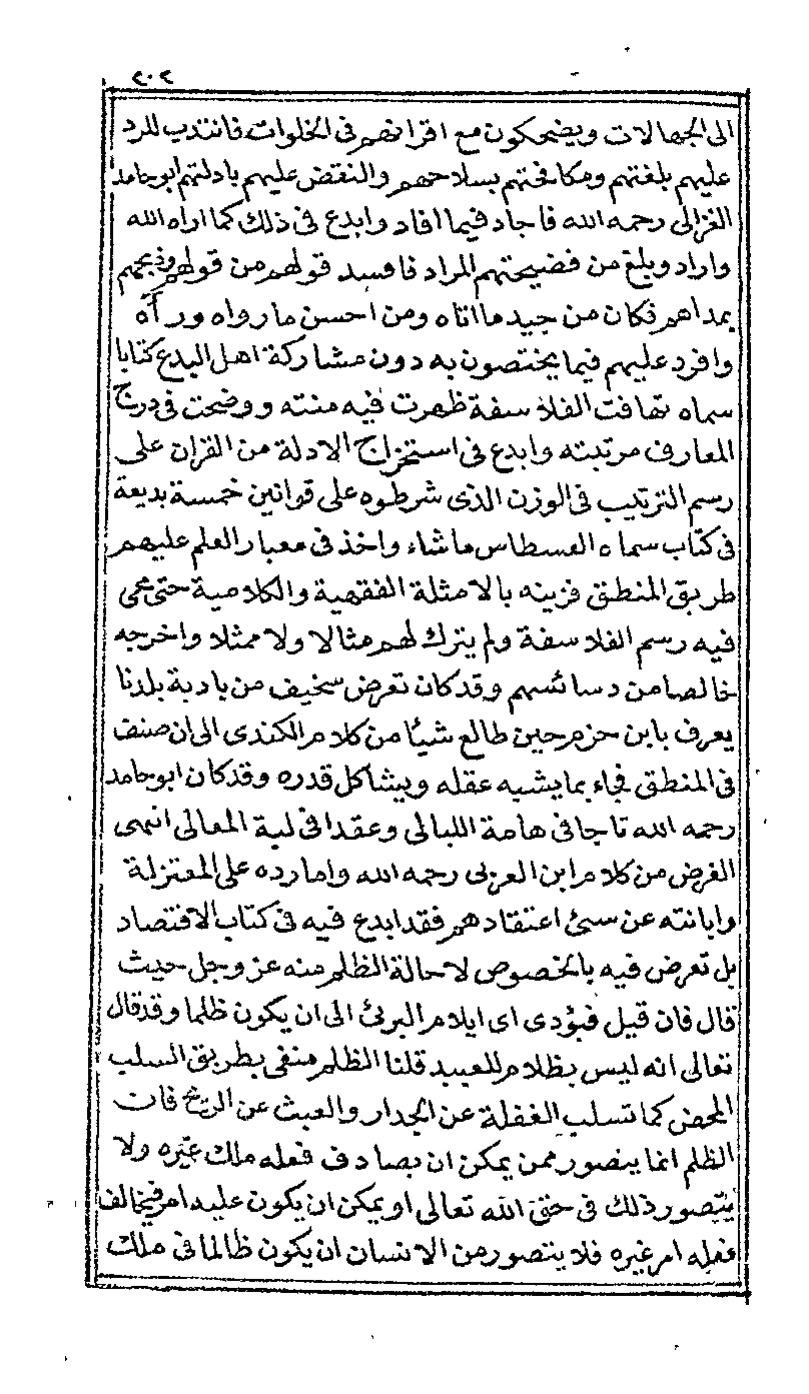 ٢٠٢
الى الجهالات ويضحكون مع اقرانهم فى الخلوات فانتدب للرد
عليهم بلغتهم ومكافحتهم بسلاحهم والنقض عليهم بادلتهم ابو حامد
الغزالى رحمه الله فاجاد فيما افاد وابدع فى ذلك كما اراه الله
واراد وبلغ من فضيحتهم المراد فافسد قولهم من قولهم وذبحهم
بمداهم فكان من جيد ما اتاه ومن احسن ما رواه ورآه
وافرد عليهم فيما يختصون به دون مشاركة اهل البدع كتابا
سماه تهافت الفلاسفة ظهرت فيه منته ووضحت فى درج
المعارف مرتبته وابدع فى استخراج الادلة من القران على
رسم الترتيب فى الوزن الذى شرطوه على قوانين خمسة بديعة
فى كتاب سماه القسطاس ما شاء واخذ فى معيار العلم عليهم
طريق المنطق فزينه بالامثلة الفقهية والكلامية حتى محى
فيه رسم الفلاسفة ولم يترك لهم مثالا ولا ممثلا واخرجه
خالصا من دسائسهم وقد كان تعرض سخيف من بادية بلدنا
يعرف بابن حزم حين طالع شيئا من كلام الكندى الى ان صنف
فى المنطق فجاء بما يشبه عقله ويشاكل قدره وقد كان ابو حامد
رحمه الله تاجا فى هامة الليالى وعقدا فى لبة المعالى انتهى
الغرض من كلام ابن العربى رحمه الله واما رده على المعتزلة
وابانته عن سيئ اعتقادهم فقد ابدع فيه فى كتاب الاقتصاد
بل تعرض فيه بالخصوص لاحالة الظلم منه عز وجل حيث
قال فان قيل فيؤدى اى ايلام البرئ الى ان يكون ظلما وقد قال
تعالى انه ليس بظلام للعبيد قلنا الظلم منفى بطريق السلب
المحض كما تسلب الغفلة عن الجدار والعبث عن الريح فان
الظلم انما يتصور ممن يمكن ان يصادف فعله ملك غيره ولا
يتصور ذلك فى حق الله تعالى او يمكن ان يكون عليه امر فيخالف
فعله امر غيره فلا يتصور من الانسان ان يكون ظالما فى ملك